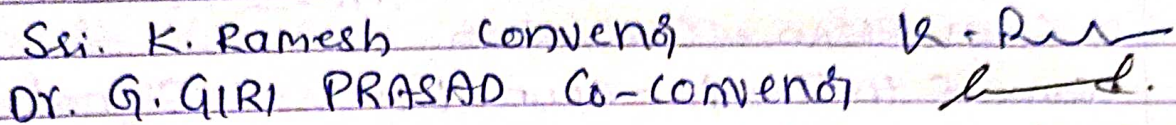 Sri. K. Ramesh Convenor K. Ram
Dr. G. GIRI PRASAD Co-convenor